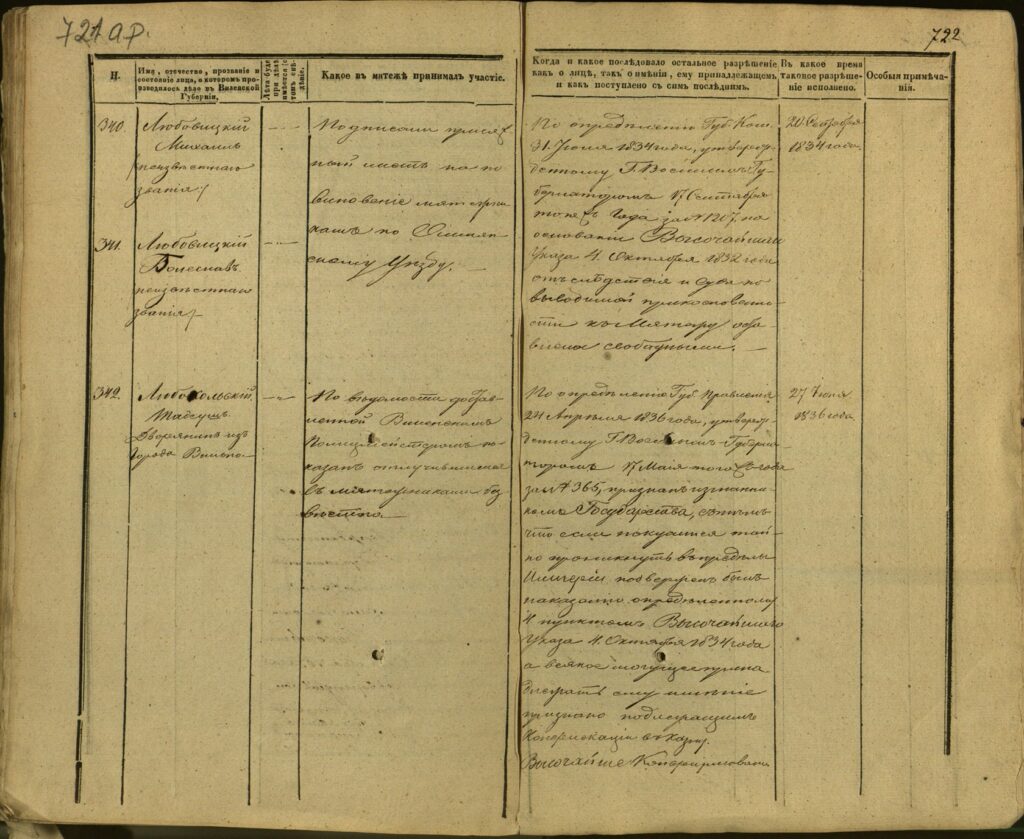 721 ар.
722
Н.
Имя, отечество, прозваніе и
состояніе лица, о которомъ про-
изводилось дѣло въ Виленской
Губерніи.
Лѣта буде
при дѣлѣ
имѣется о
томъ свѣ-
дѣніе.
Какое въ мятежѣ принималъ участіе.
Когда и какое послѣдовало остальное разрѣшеніе
какъ о лицѣ, такъ о имѣніи, ему принадлежащемъ
и какъ поступлено съ симъ послѣднимъ.
Въ какое время
таковое разрѣше-
ніе исполнено.
Особыя примѣча-
нія.
340.
Любовицкій
Михаилъ
/неизвѣстнаго
званія/
341.
Любовицкій
Болеславъ
неизвѣстнаго
званія/
Подписали присяж
ный листъ на по
виновеніе мятежни
камъ по Ошмян-
скому Уѣзду.
По опредѣленію Губ. Ком.
31 Іюля 1834 года, утверж-
денному Г. Военнымъ Гу-
бернаторомъ 17 Сентября
того жъ Года за № 1207. на
основаніи Высочайшаго
Указа 4. Октября 1832 года
отъ слѣдствія и суда по
выводимой прикосновен-
сти къ Мятежу оста-
влены свободными.
20 Октября
1834 года.
342.
Любохольскій
Тадеушъ
Дворянинъ изъ
Города Вильно
По вѣдомости достав-
ленной Виленскимъ
Полицмейстеромъ по-
казанъ отлучившимся
съ мятежниками без
вѣстно.
По опредѣленію Губ. Правленія
24 Апрѣля 1836 года, утверж-
денному Г. Военнымъ Губерна
торомъ 17 Маія того жъ года
за № 365, признанъ изгнанни-
комъ Государства, съ тѣмъ
что если покусится тай-
но проникнуть въ предѣлы
Имперіи подверженъ былъ
наказанію опредѣленному
4 пунктомъ Высочайшаго
Указа 4. Октября 1834 года
а всякое могущее прина
длежать ему имѣніе
признано подлежащимъ
Конфискаціи въ Казну.
Высочайше Конфирмовано
27 Іюня
1836 года